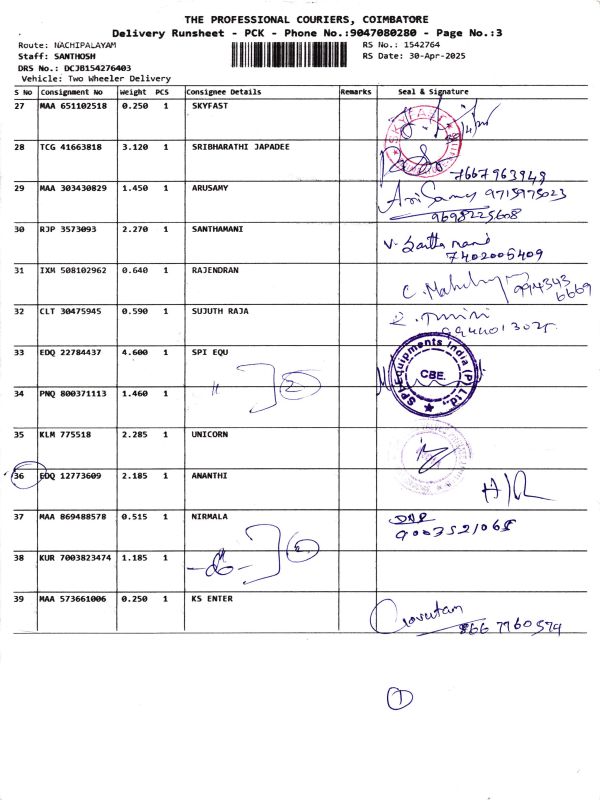 THE PROFESSIONAL COURIERS, COIMBATORE
Delivery Runsheet - PCK - Phone No.:9047080280 - Page No.:3
Route: NACHIPALAYAM RS No.: 1542764
Staff: SANTHOSH RS Date: 30-Apr-2025
DRS No.: DCJB154276403
Vehicle: Two Wheeler Delivery
S No Consignment No Weight PCS Consignee Details Remarks Seal & Signature
27 MAA 651102518 0.250 1 SKYFAST
SKYFAST
28 TCG 41663818 3.120 1 SRIBHARATHI JAPADEE
7667963949
29 MAA 303430829 1.450 1 ARUSAMY AriSamy 9715975023
9698225608
30 RJP 3573093 2.270 1 SANTHAMANI V. Santhamani
7402005409
31 IXM 508102962 0.640 1 RAJENDRAN
994343
6669
32 CLT 30475945 0.590 1 SUJUTH RAJA
33 EDQ 22784437 4.600 1 SPI EQU
SPI Equipments India (P) Ltd.,
CBE.
34 PNQ 800371113 1.460 1 " 2
35 KLM 775518 2.285 1 UNICORN
36 EDQ 12773609 2.185 1 ANANTHI
37 MAA 869488578 0.515 1 NIRMALA
9003521068
38 KUR 7003823474 1.185 1 -do- 2
39 MAA 573661006 0.250 1 KS ENTER
8667760574
1